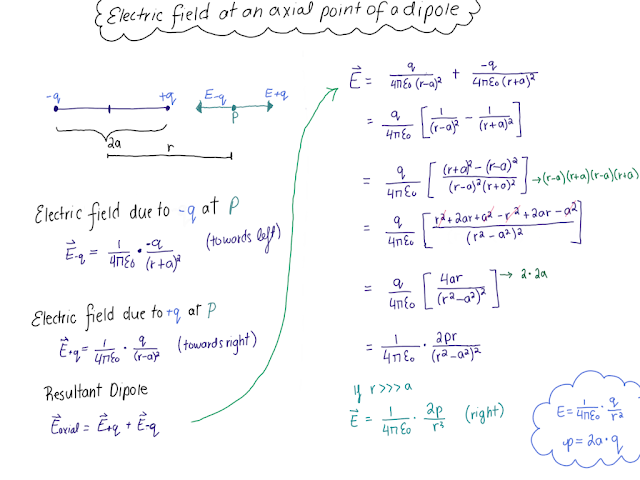 Electric field at an axial point of a dipole
-q +q E-q E+q
P
2a r
Electric field due to -q at P
E⃗-q = 1/4πε₀ · -q/(r+a)² (towards left)
Electric field due to +q at P
E⃗+q = 1/4πε₀ · q/(r-a)² (towards right)
Resultant Dipole
E⃗axial = E⃗+q + E⃗-q
E⃗ = q/4πε₀(r-a)² + -q/4πε₀(r+a)²
= q/4πε₀ [1/(r-a)² - 1/(r+a)²]
= q/4πε₀ [(r+a)² - (r-a)²/(r-a)²(r+a)²] → (r-a)(r+a)(r-a)(r+a)
= q/4πε₀ [r² + 2ar + a² - r² + 2ar - a²/(r² - a²)²]
= q/4πε₀ [4ar/(r² - a²)²] → 2·2a
= 1/4πε₀ · 2pr/(r² - a²)²
if r >>> a
E⃗ = 1/4πε₀ · 2p/r³ (right)
E = 1/4πε₀ · q/r²
p = 2a · q